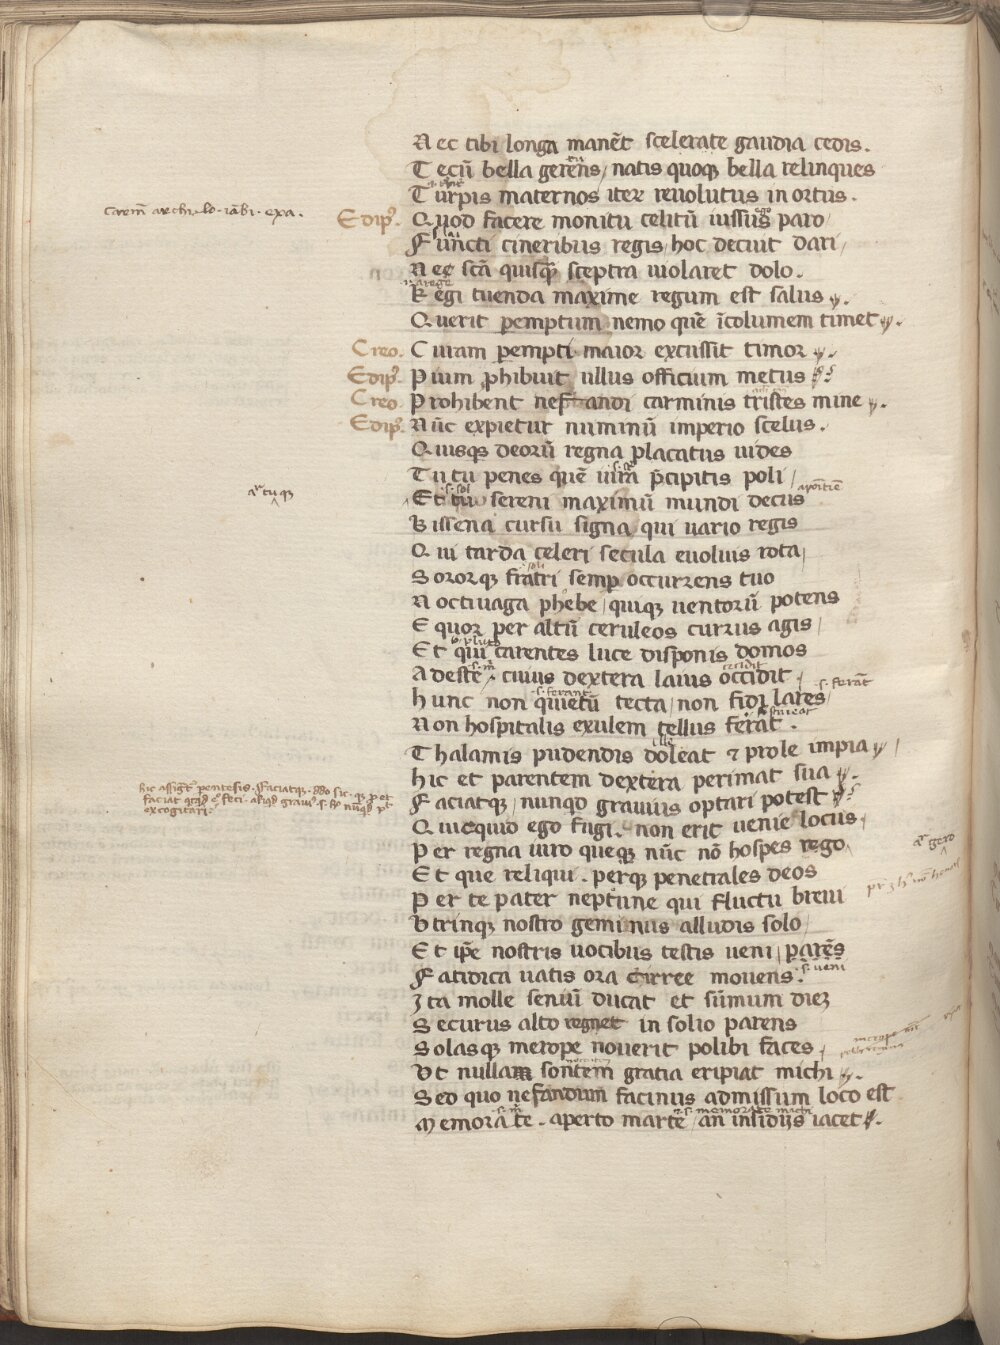 Nec tibi longa manēt scelerate gaudia cedis.
Tecū bella gerens / natis quoqꝫ bella relinques
Turpis maternos iteꝝ reuolutus in ortus.
carem̄ archi. lo. iābi. exa.
Edip⁹. Quod facere monitu celitū iussus paro /
Functi cineribus regis / hoc decuit dari /
Nec scā quisq̄ sceptra uiolaret dolo.
Regi tuenda maxime regum est salus
Querit peremptum nemo quē īcolumem timet
Creo. Curam perempti maior excussit timor
Edip⁹. Pium ꝓhibuit ullus officium metus
Creo. Prohibent nefandi carminis tristes mine
Edip⁹. Nūc expietur numinū imperio scelus.
Quisqs deorū regna placatus uides
Tu tu penes quē iura p̄cipitis poli /
Et tu sereni maximū mundi decus
Bissena cursu signa qui uario regis
Qui tarda celeri secula euoluis rota /
Sororqꝫ fratri semꝑ occurrens tuo
Noctiuaga phebe / quiqꝫ uentorū potens
Equor per altū ceruleos currus agis /
Et qui carentes luce disponis domos
Adeste / cuius dextera laius occidit /
s. ferāt
hunc non quietū tecta / non fidi lares /
Non hospitalis exulem tellus ferat.
Thalamis pudendis doleat ⁊ prole impia /
hic et parentem dextera perimat sua
Faciatqꝫ / nunqd grauius optari potest
excogitari
Quicquid ego fugi. non erit uenie locus /
Per regna iuro queqꝫ nūc nō hospes rego
gero
Et que reliqui. perqꝫ penetrales deos
Per te pater neptune qui fluctu breui
Vtrinqꝫ nostro geminus alludis solo /
Et ip̄e nostris uocibus testis ueni / parēs
Fatidica uatis ora cirree mouens.
Ita molle senuū ducat et sūmum diez
Securus alto regnet in solio parens
Solasqꝫ merope nouerit polibi faces /
Vt nullam sontem gratia eripiat michi
Sed quo nefandum facinus admissum loco est
Memorate. aperto marte / an insidijs iacet